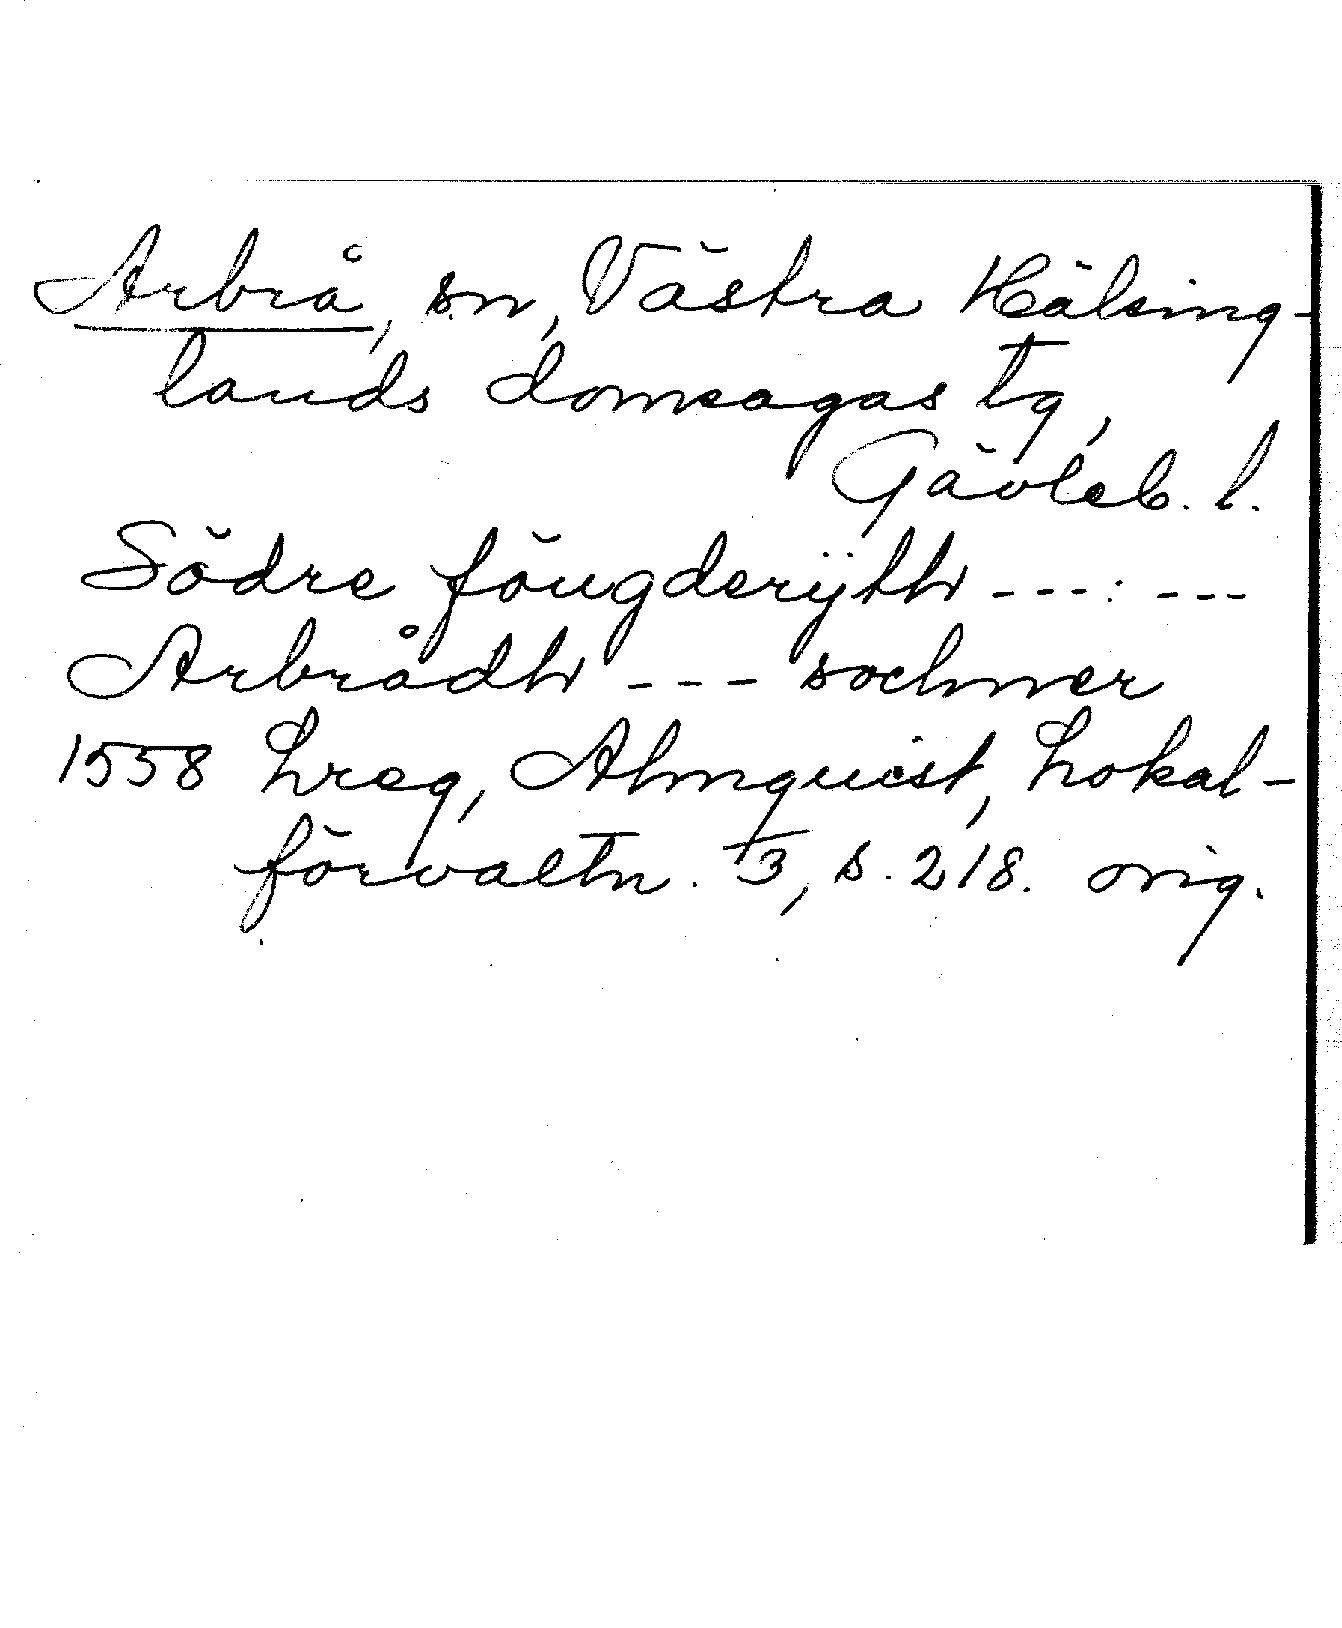 Arbrå, sn, Västra Hälsing-
lands domsagas tg,
Gävleb. l.
Södre föugderÿth ---: ---
Arbrådh --- sochner
1558 Lreg, Almquist, Lokal-
förvaltn. 3, s. 218. orig.